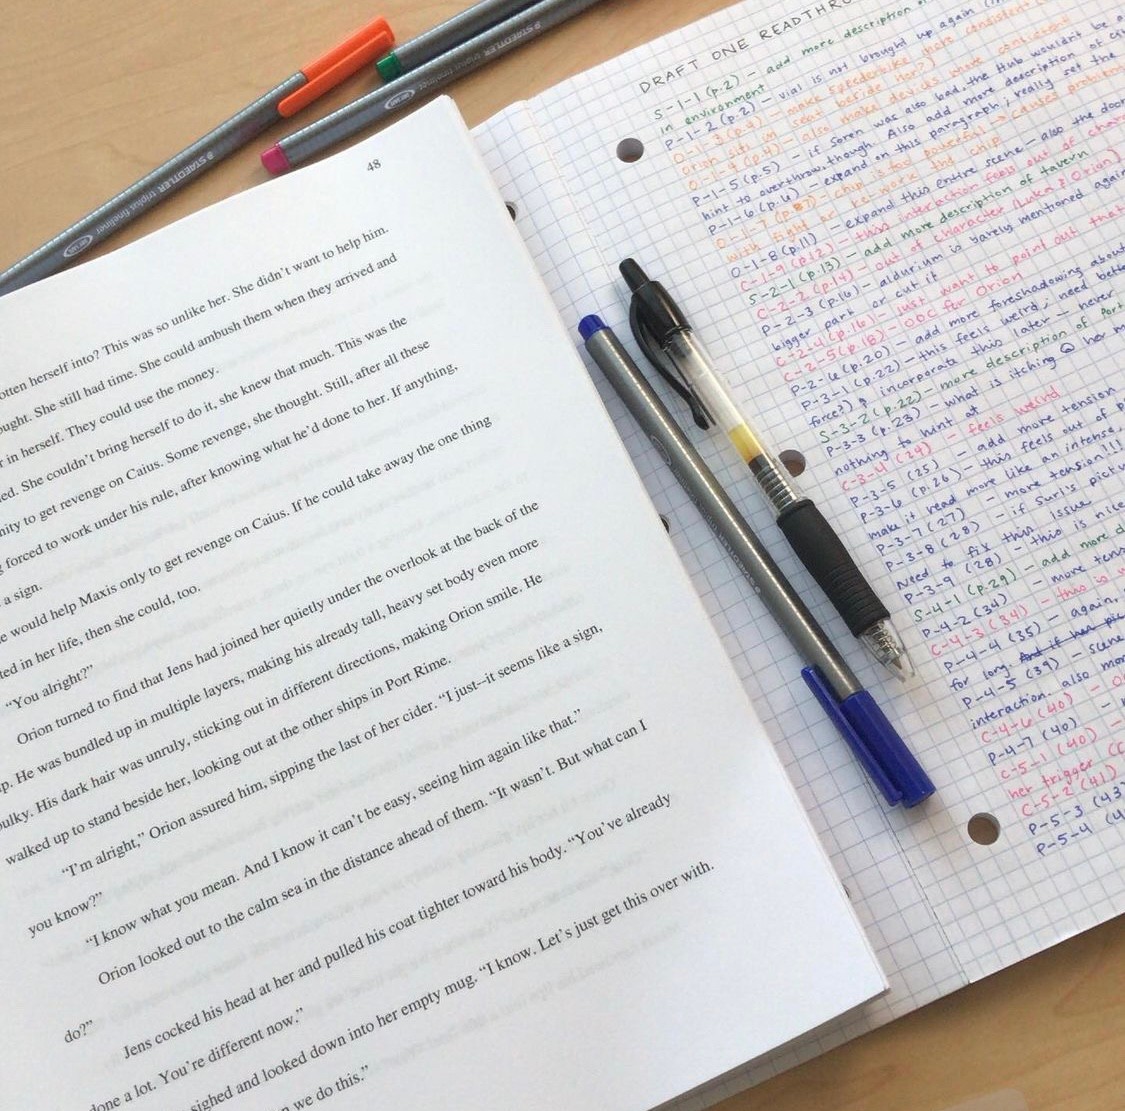 48
otten herself into? This was so unlike her. She didn't want to help him.
ought. She still had time. She could ambush them when they arrived and
r in herself. They could use the money.
ed. She couldn't bring herself to do it, she knew that much. This was the
nity to get revenge on Caius. Some revenge, she thought. Still, after all these
g forced to work under his rule, after knowing what he'd done to her. If anything,
a sign.
e would help Maxis only to get revenge on Caius. If he could take away the one thing
ted in her life, then she could, too.
"You alright?"
Orion turned to find that Jens had joined her quietly under the overlook at the back of the
p. He was bundled up in multiple layers, making his already tall, heavy set body even more
bulky. His dark hair was unruly, sticking out in different directions, making Orion smile. He
walked up to stand beside her, looking out at the other ships in Port Rime.
"I'm alright," Orion assured him, sipping the last of her cider. "I just--it seems like a sign,
you know?"
"I know what you mean. And I know it can't be easy, seeing him again like that."
Orion looked out to the calm sea in the distance ahead of them. "It wasn't. But what can I
do?"
Jens cocked his head at her and pulled his coat tighter toward his body. "You've already
done a lot. You're different now."
sighed and looked down into her empty mug. "I know. Let's just get this over with.
n we do this."
STAEDTLER triplus fineliner
STAEDTLER triplus fineliner
DRAFT ONE READTHRO
S-1-1 (p.2) - add more description o
in environment
P-1-2 (p.2) - vial is not brought up again
O-1-3 (p.4) - make
O-1-4 (p.4)
P-1-5 (p.5) - if soren was also bad, the Hub wouldn't be a
hint to overthrow, though. Also add more description of
P-1-6 (p.6) - expand on this paragraph; really set the
O-1-7 (p.8) - chip is too powerful → causes problems
with fight
O-1-8 (p.11) - expand this entire scene - also the door
C-1-9 (p.12) - this interaction feels out of char
S-2-1 (p.13) - add more description of tavern
C-2-2 (p.14) - out of character (Luka & Orion)
P-2-3 (p.16) - aldurium is rarely mentioned again
bigger part or cut it
C-2-4 (p.16) - just want to point out that
C-2-5 (p.18) - OOC for Orion
P-2-6 (p.20) - add more foreshadowing about
P-3-1 (p.22) - this feels weird; need bette
force?) & incorporate this later - never
S-3-2 (p.22) - more description of Port
P-3-3 (p.23) - what is itching @ her
nothing to hint at
C-3-4 (24) - feels weird
P-3-5 (25) - add more tension
P-3-6 (p.26) - this feels out of p
make it read more like an intense
P-3-7 (27) - more tension!!!
P-3-8 (28) - if surl's pictu
Need to fix this issue
P-3-9 (28) - this is nice
S-4-1 (p.29) - add more d
P-4-2 (34) - more tens
C-4-3 (34) - this is
P-4-4 (35) - again,
for long.
P-4-5 (39) - scene
interaction. also mor
C-4-6 (40) - O
P-4-7 (40) -
C-5-1 (40) -
her trigger
C-5-2 (41)
P-5-3 (43)
P-5-4 (4